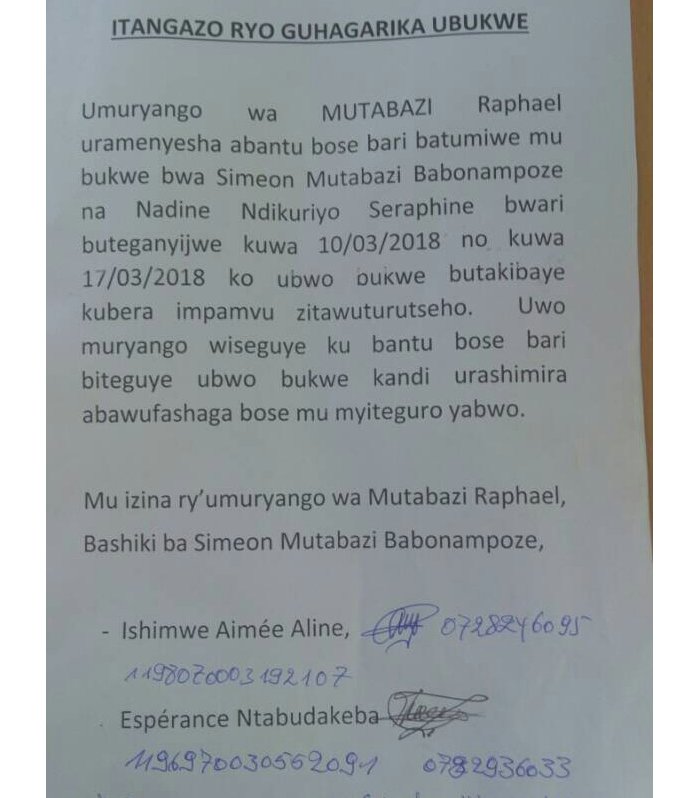 ITANGAZO RYO GUHAGARIKA UBUKWE
Umuryango wa MUTABAZI Raphael
uramenyesha abantu bose bari batumiwe mu
bukwe bwa Simeon Mutabazi Babonampoze
na Nadine Ndikuriyo Seraphine bwari
buteganyijwe kuwa 10/03/2018 no kuwa
17/03/2018 ko ubwo bukwe butakibaye
kubera impamvu zitawuturutseho. Uwo
muryango wiseguye ku bantu bose bari
biteguye ubwo bukwe kandi urashimira
abawufashaga bose mu myiteguro yabwo.
Mu izina ry'umuryango wa Mutabazi Raphael,
Bashiki ba Simeon Mutabazi Babonampoze,
- Ishimwe Aimée Aline, 0728246095
1198070003192107
Espérance Ntabudakeba
1196970030562091 0782936033